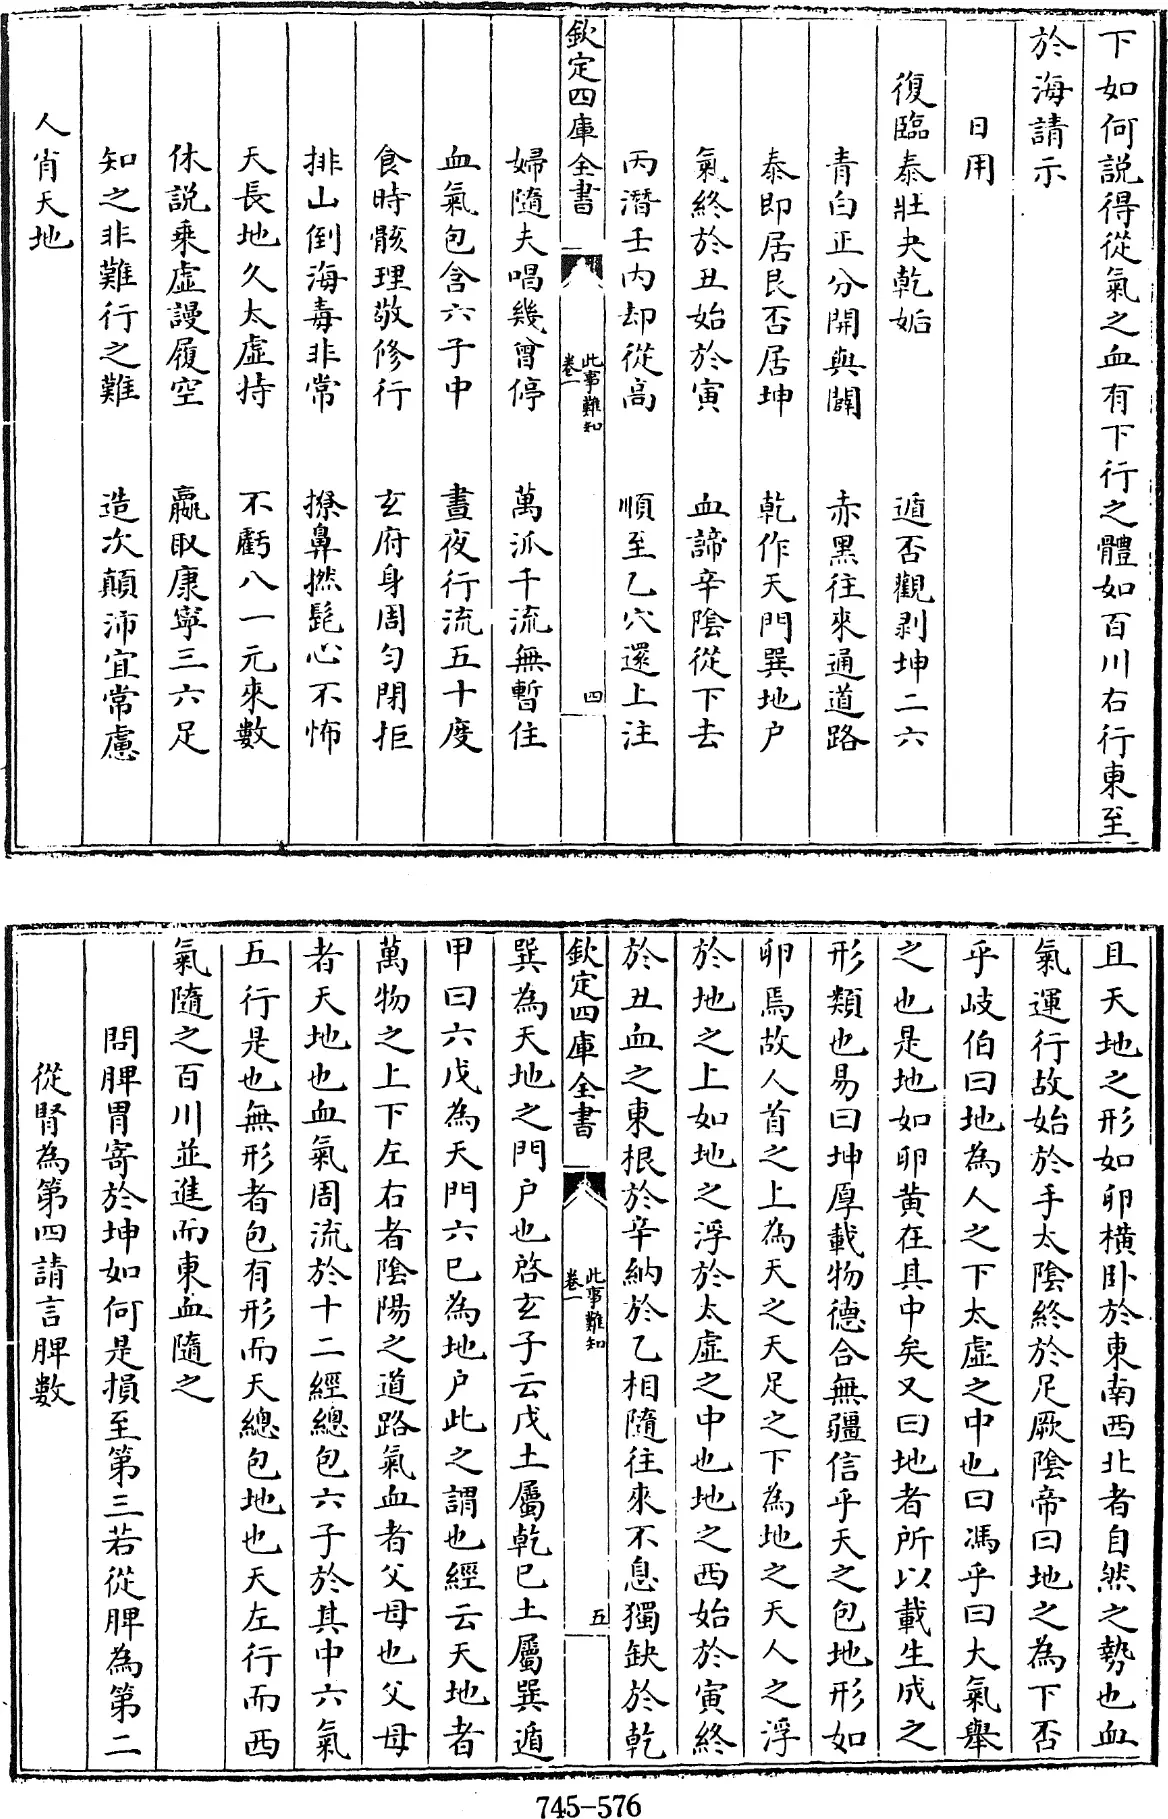 下如何説得從氣之血有下行之體如百川右行東至
於海請示
日用
復臨泰壯夬乾姤 遁否觀剥坤二六
青白正分開與闢 赤黑往來通道路
泰即居艮否居坤 乾作天門巽地户
氣終於丑始於寅 血諦辛陰從下去
丙潛壬内却從高 順至乙穴還上注
欽定四庫全書
此事難知
卷一
四
婦隨夫唱幾曾停 萬派千流無暫住
血氣包含六子中 晝夜行流五十度
食時骸理敬修行 玄府身周匀閉拒
排山倒海毒非常 撩鼻撚髭心不怖
天長地久太虚持 不虧八一元來數
休説乗虚謾履空 贏取康寧三六足
知之非難行之難 造次顛沛宜常慮
人肖天地
且天地之形如卵横卧於東南西北者自然之勢也血
氣運行故始於手太陰終於足厥陰帝曰地之為下否
乎岐伯曰地為人之下太虚之中也曰馮乎曰大氣舉
之也是地如卵黄在其中矣又曰地者所以載生成之
形類也易曰坤厚載物德合無疆信乎天之包地形如
卵焉故人首之上為天之天足之下為地之天人之浮
於地之上如地之浮於太虚之中也地之西始於寅終
於丑血之東根於辛納於乙相隨往來不息獨缺於乾
欽定四庫全書
此事難知
卷一
五
巽為天地之門户也啓玄子云戊土屬乾己土屬巽遁
甲曰六戊為天門六己為地户此之謂也經云天地者
萬物之上下左右者陰陽之道路氣血者父母也父母
者天地也血氣周流於十二經總包六子於其中六氣
五行是也無形者包有形而天總包地也天左行而西
氣隨之百川並進而東血隨之
問脾胃寄於坤如何是損至第三若從脾為第二
從腎為第四請言脾數
745-576